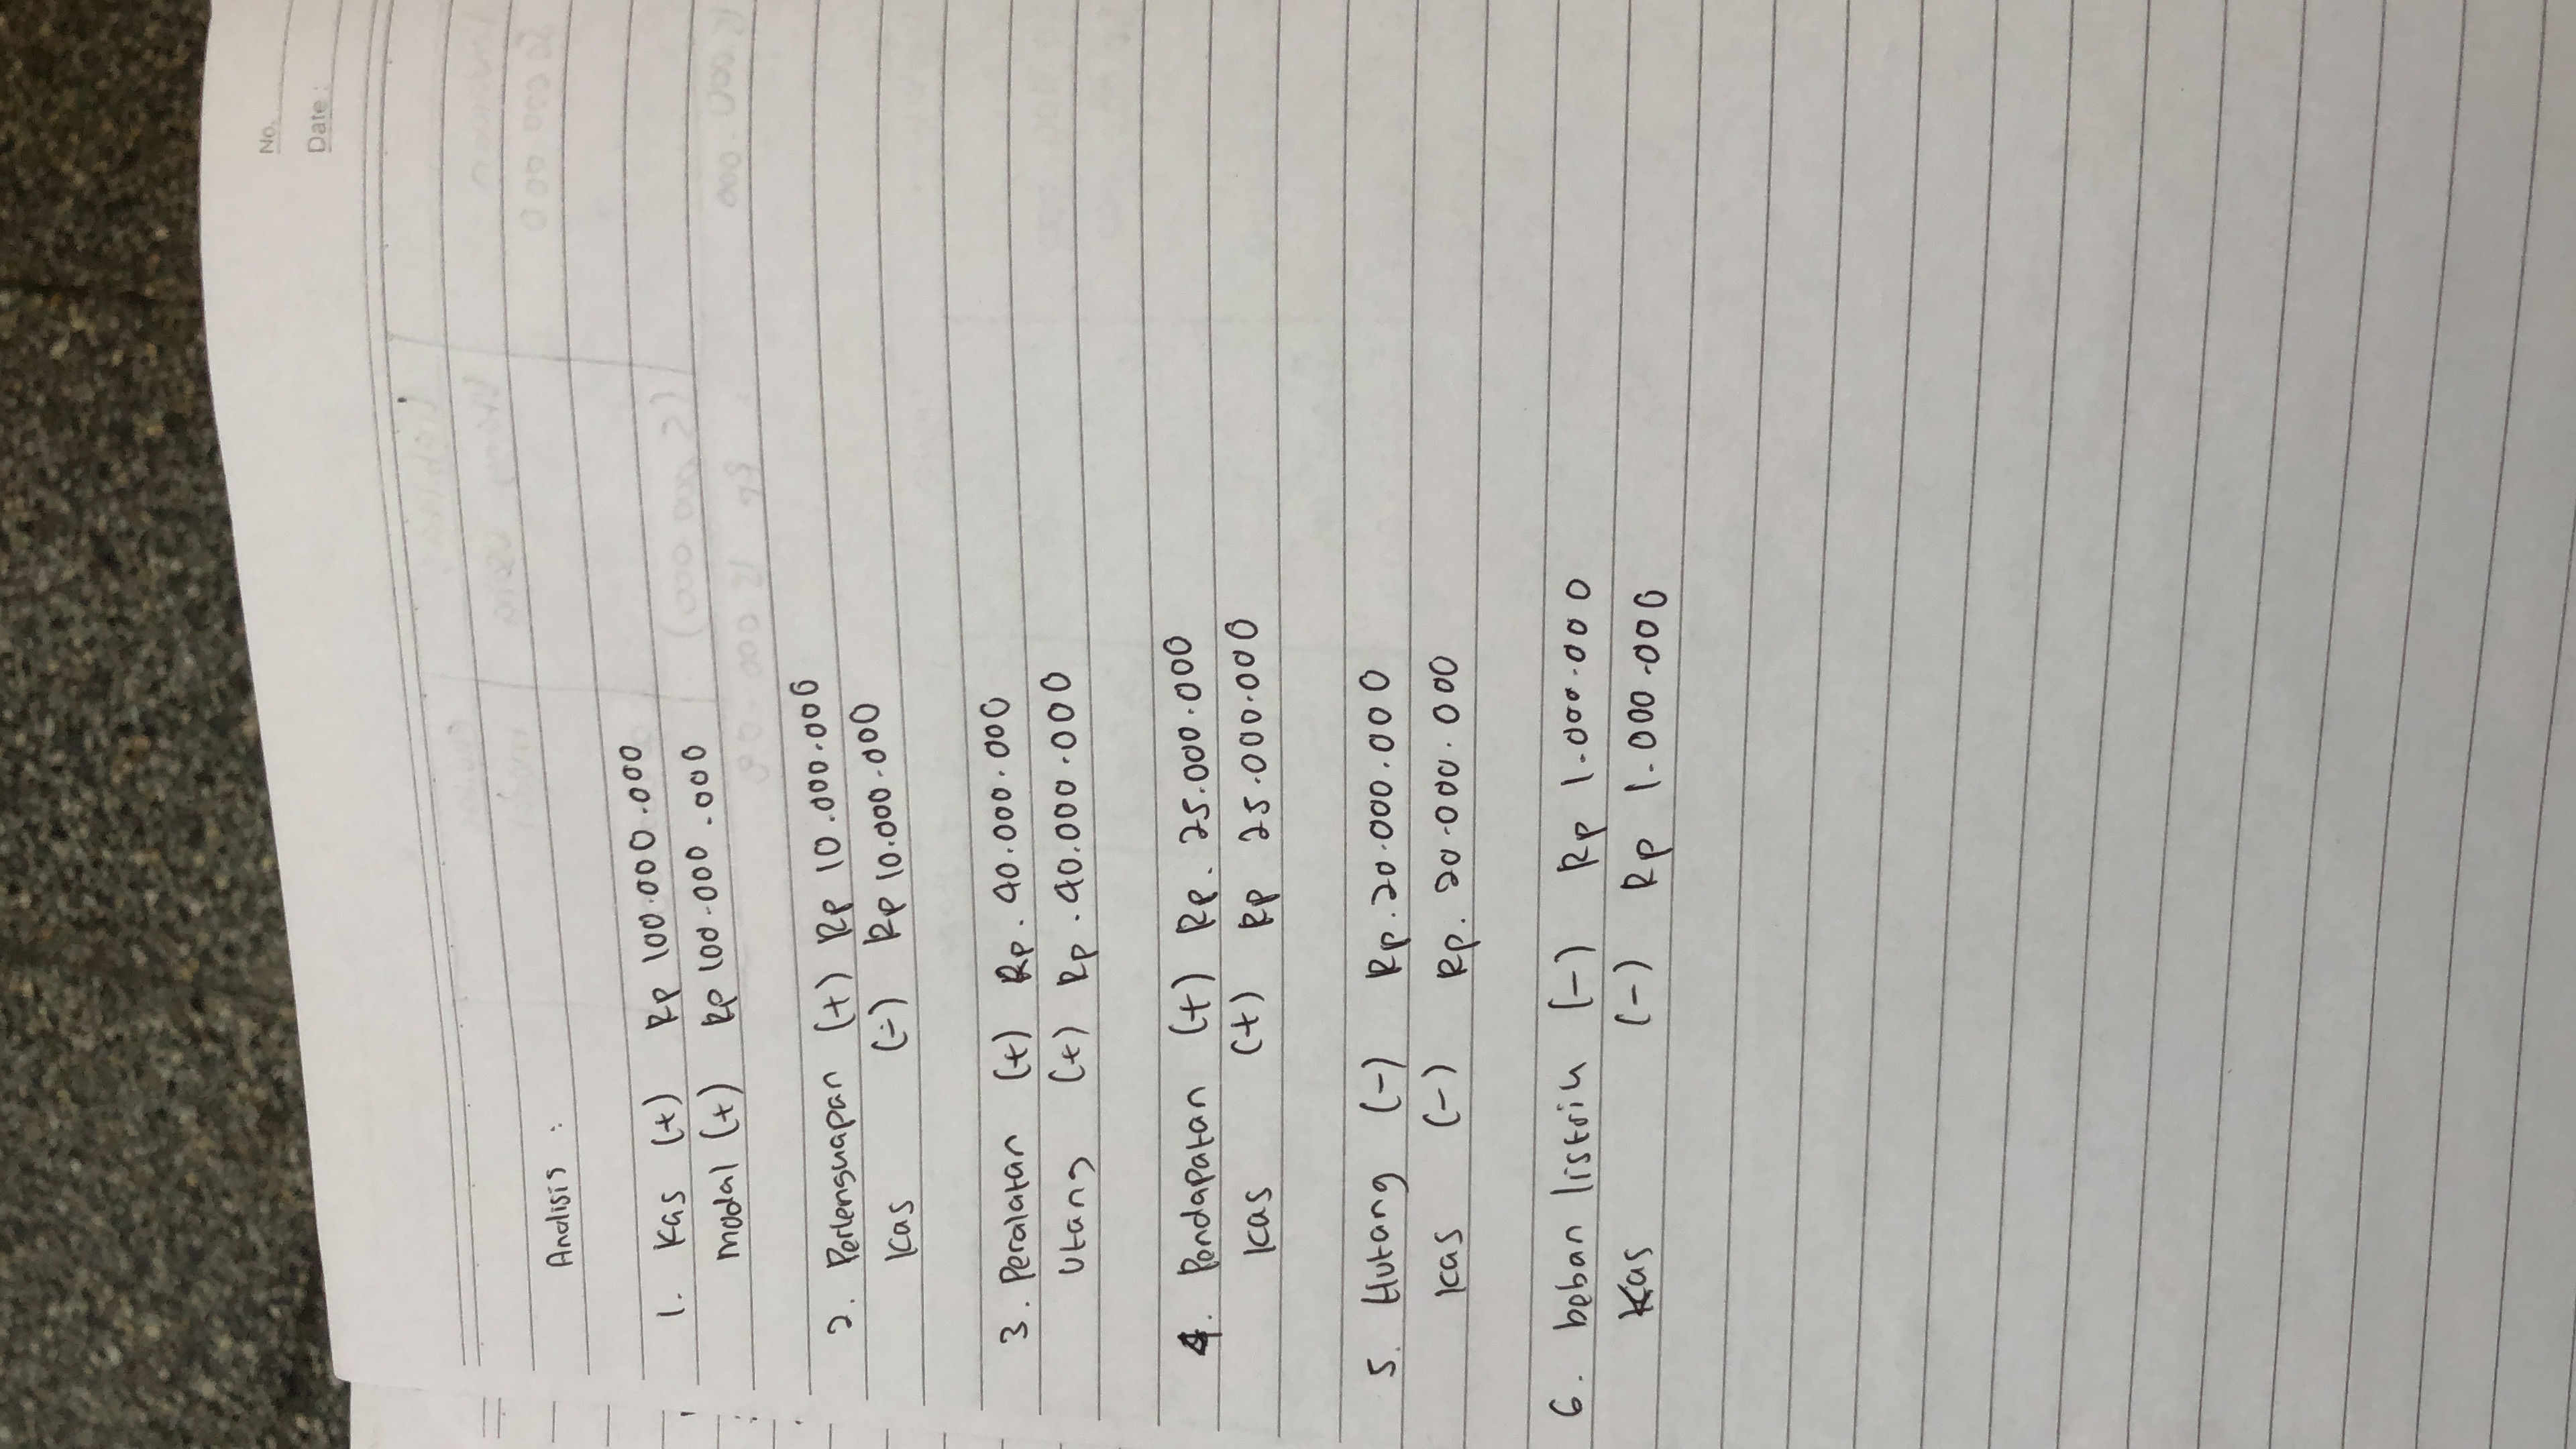 No.
Date:
Analisis :
1. Kas (+) Rp 100.000.000
Modal (+) Rp 100.000.000
2. Perlengkapan (+) Rp 10.000.000
Kas (-) Rp 10.000.000
3. Peralatan (+) Rp. 40.000.000
Utang (+) Rp. 40.000.000
4. Pendapatan (+) Rp. 25.000.000
Kas (+) Rp 25.000.000
5. Hutang (-) Rp. 20.000.000
Kas (-) Rp. 20.000.000
6. beban listrik (-) Rp 1.000.000
Kas (-) Rp 1.000.000